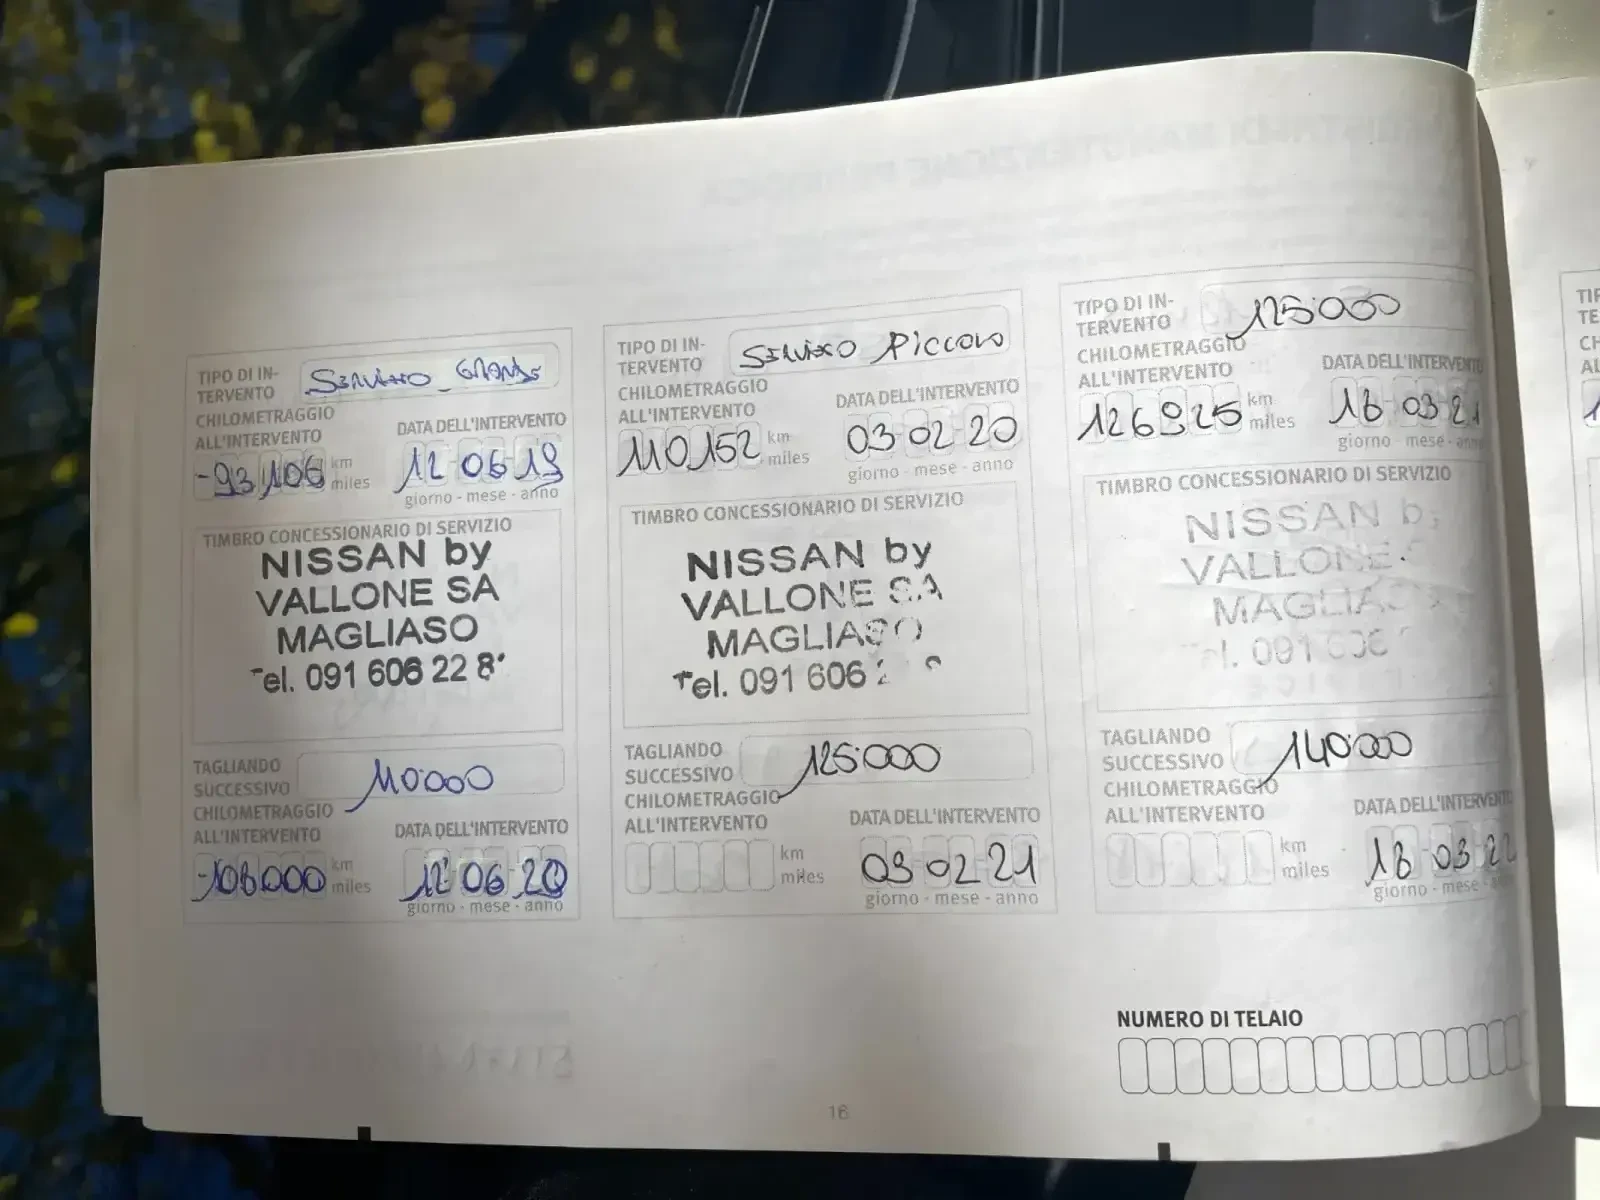 TIPO DI IN-
TERVENTO
SERVIZIO GRANDE
CHILOMETRAGGIO
ALL'INTERVENTO
93106 km
miles
DATA DELL'INTERVENTO
12 06 19
giorno - mese - anno
TIMBRO CONCESSIONARIO DI SERVIZIO
NISSAN by
VALLONE SA
MAGLIASO
Tel. 091 606 22 8
TAGLIANDO
SUCCESSIVO
110.000
CHILOMETRAGGIO
ALL'INTERVENTO
108000 km
miles
DATA DELL'INTERVENTO
12 06 20
giorno - mese - anno
TIPO DI IN-
TERVENTO
SERVIZIO PICCOLO
CHILOMETRAGGIO
ALL'INTERVENTO
110152 km
miles
DATA DELL'INTERVENTO
03 02 20
giorno - mese - anno
TIMBRO CONCESSIONARIO DI SERVIZIO
NISSAN by
VALLONE SA
MAGLIASO
Tel. 091 606
TAGLIANDO
SUCCESSIVO
125.000
CHILOMETRAGGIO
ALL'INTERVENTO
km
miles
DATA DELL'INTERVENTO
03 02 21
giorno - mese - anno
TIPO DI IN-
TERVENTO
125.000
CHILOMETRAGGIO
ALL'INTERVENTO
126925 km
miles
DATA DELL'INTERVENTO
18 03 21
giorno - mese - anno
TIMBRO CONCESSIONARIO DI SERVIZIO
NISSAN by
VALLONE
MAGLIAS
el. 091 606
TAGLIANDO
SUCCESSIVO
140.000
CHILOMETRAGGIO
ALL'INTERVENTO
km
miles
DATA DELL'INTERVENTO
18 03 22
giorno - mese - anno
NUMERO DI TELAIO
16